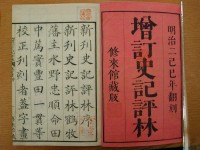 明治二己巳年翻刻
增訂史記評林
修來館藏版
新刊史記評林序
新刊史記評林鶴牧
藩主水野忠順命田
中篤實豐田一貫等
校正刊刻者蓋字畫